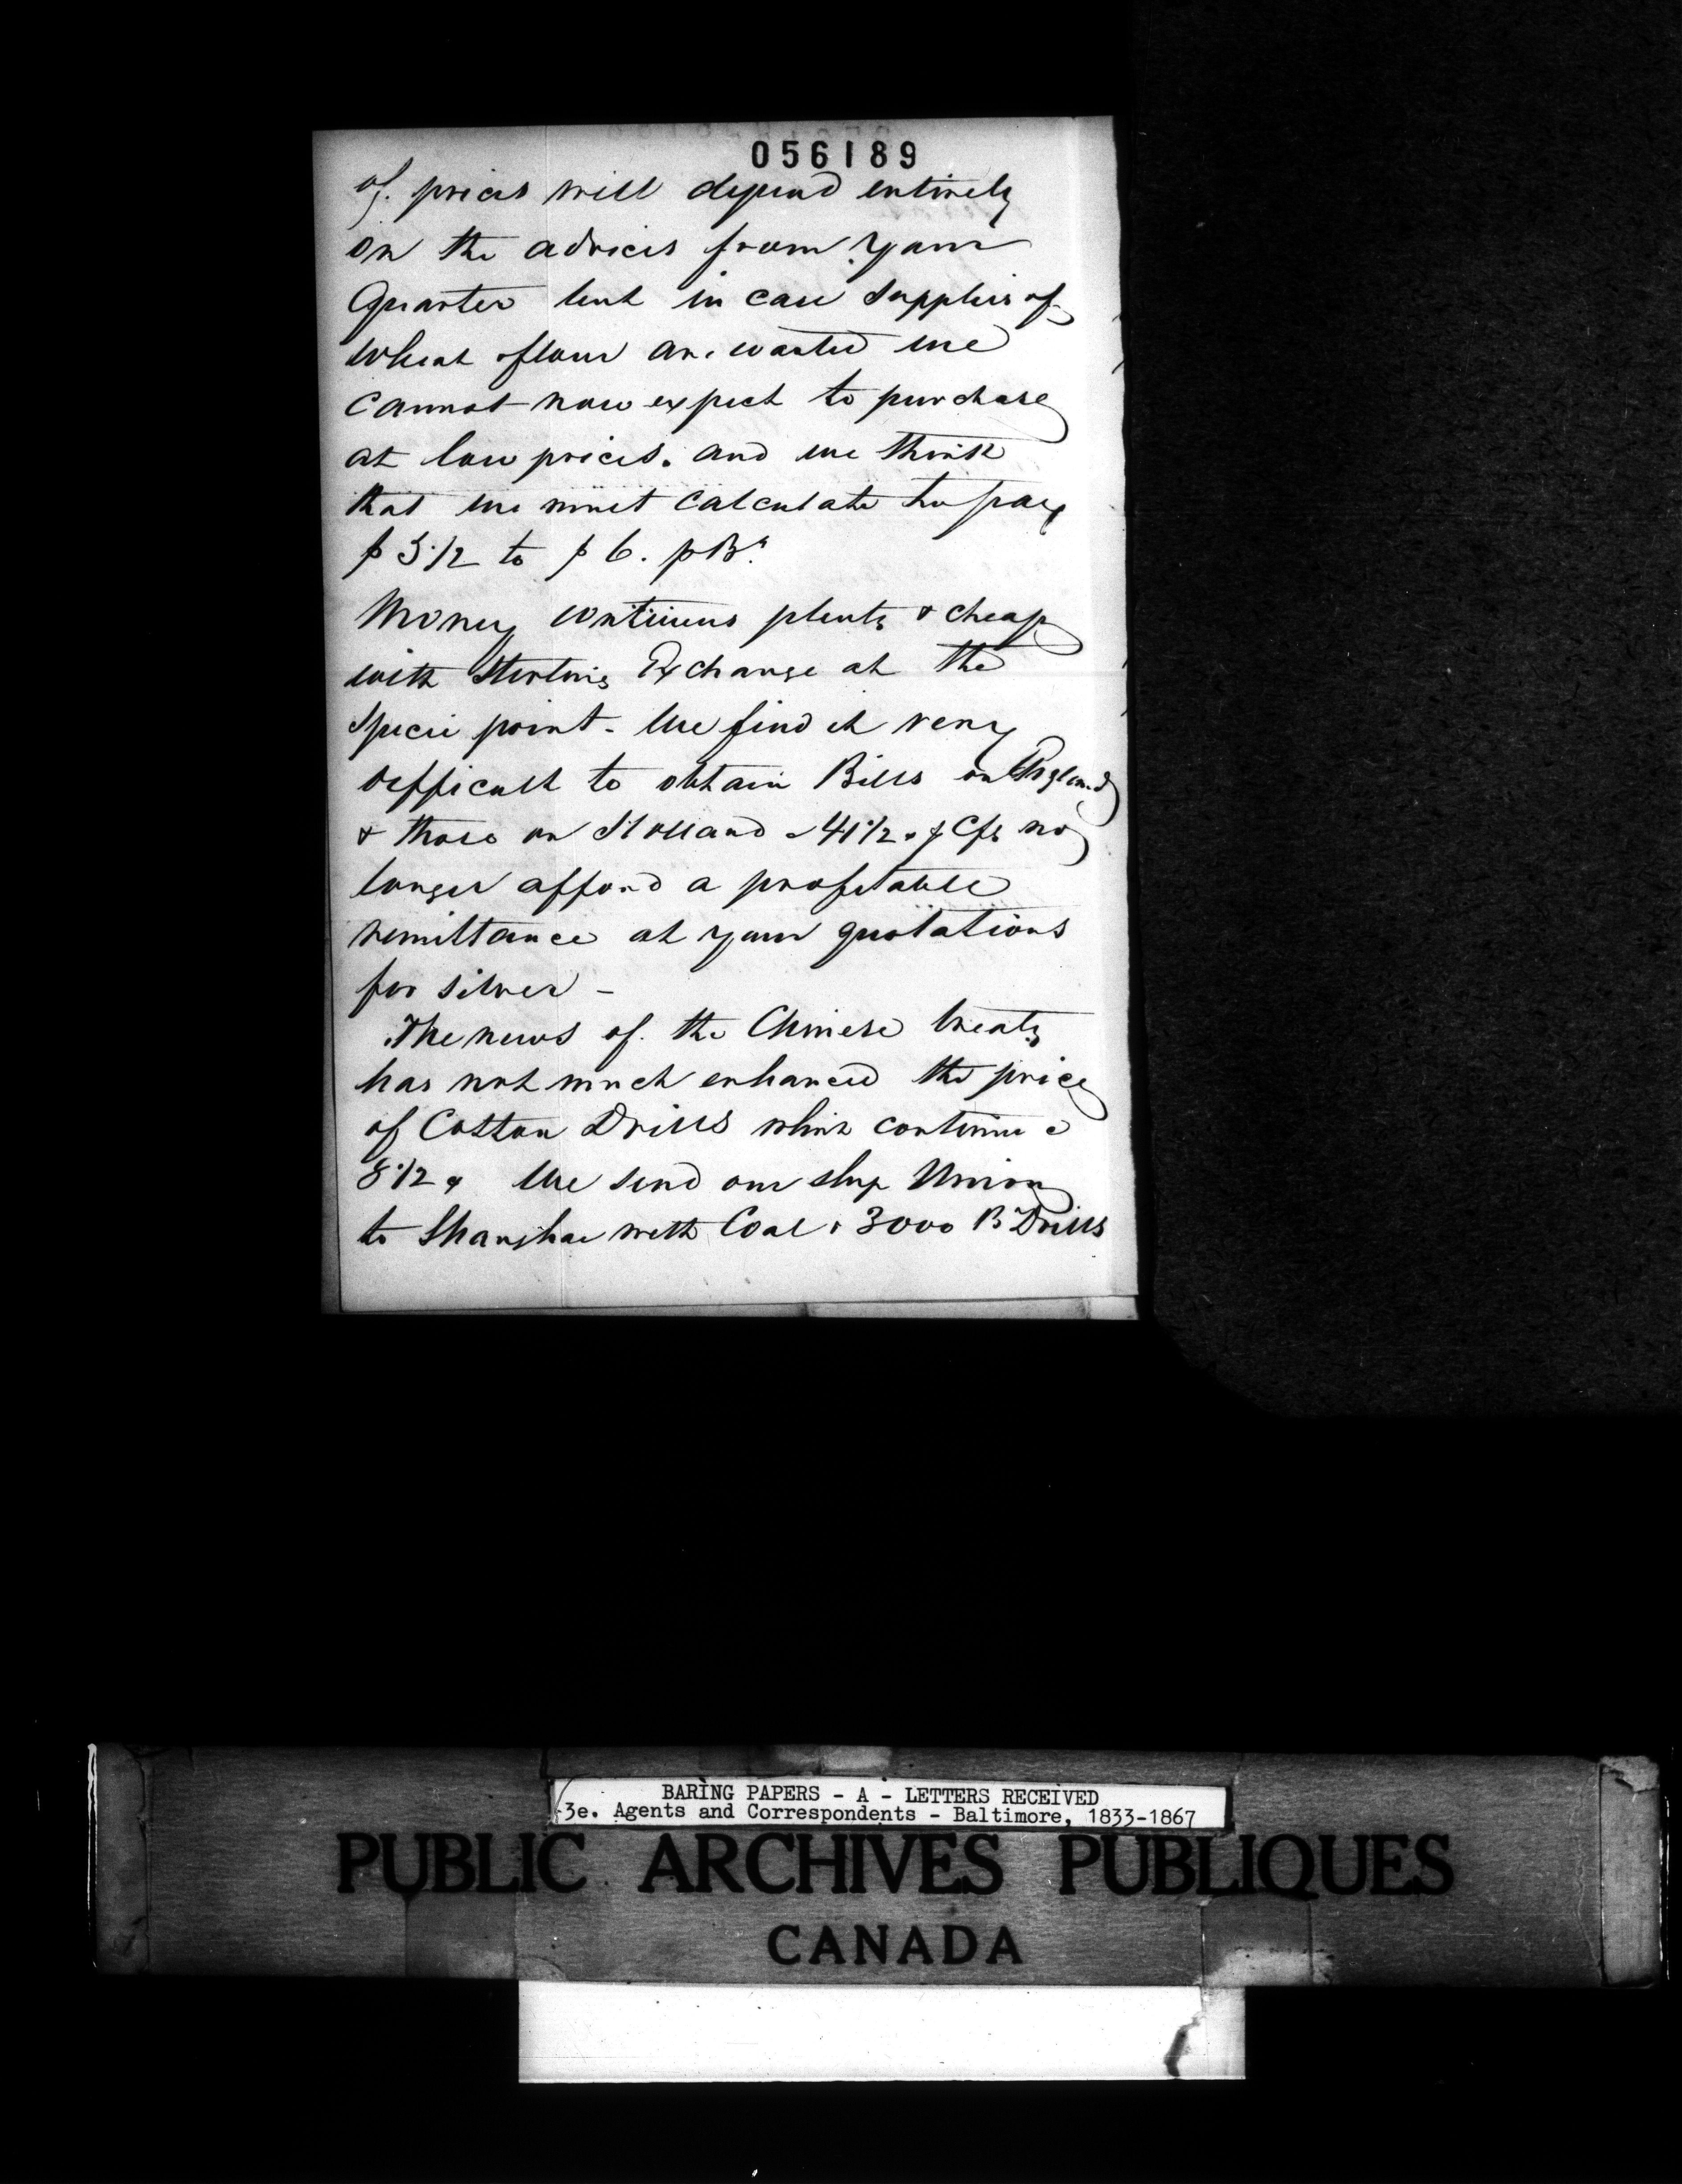 056189
of prices will depend entirely
on the advices from your
Quarter but in case supplies of
wheat & flour are wanted we
cannot now expect to purchase
at low prices. and we think
that we must calculate to pay
$ 5 1/2 to $ 6. p Br.
Money continues plenty & cheap
with Sterling Exchange at the
specie point - We find it very
difficult to obtain Bills on England
& those on Holland 41 1/2 no
longer afford a profitable
remittance at your quotations
for silver -
The news of the Chinese treaty
has not much enhanced the price
of Cotton Drills which continue @
8 1/2 We send our ship Union
to Shanghae with Coal & 3000 Drills
BARING PAPERS - A - LETTERS RECEIVED
3e. Agents and Correspondents - Baltimore, 1833-1867
PUBLIC ARCHIVES PUBLIQUES
CANADA